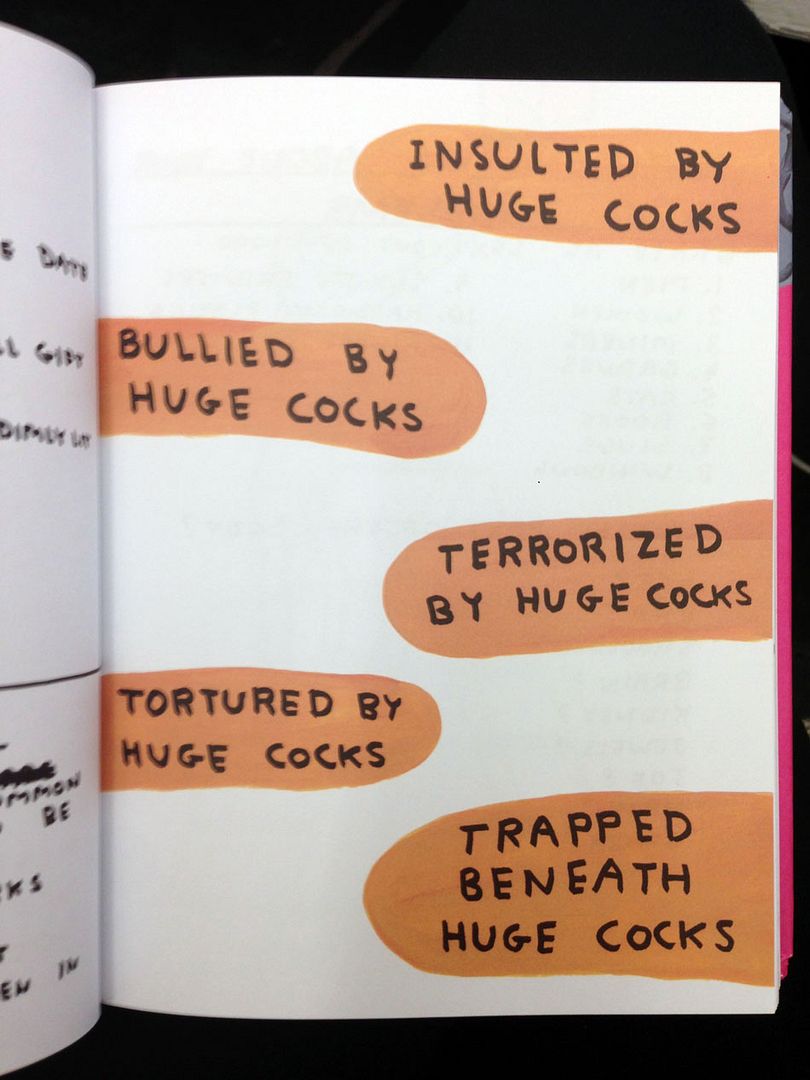 INSULTED BY
HUGE COCKS
BULLIED BY
HUGE COCKS
TERRORIZED
BY HUGE COCKS
TORTURED BY
HUGE COCKS
TRAPPED
BENEATH
HUGE COCKS
BE
IN